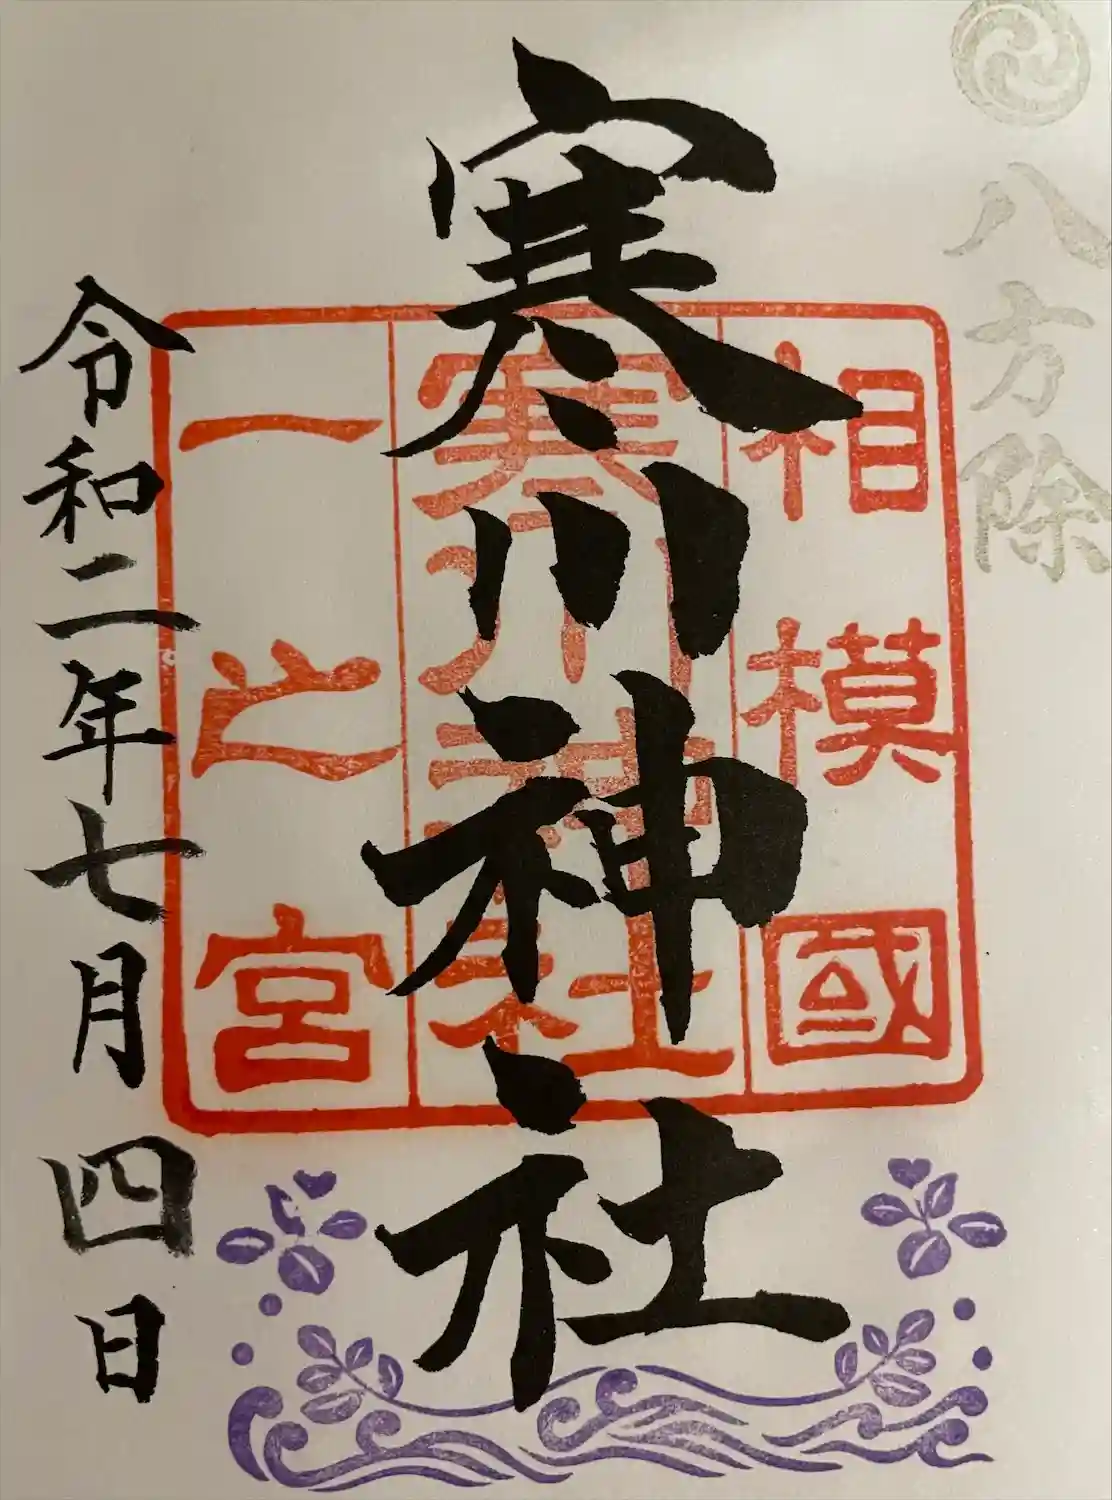 八方除
寒川神社
相模國
寒川神社
一之宮
令和二年七月四日